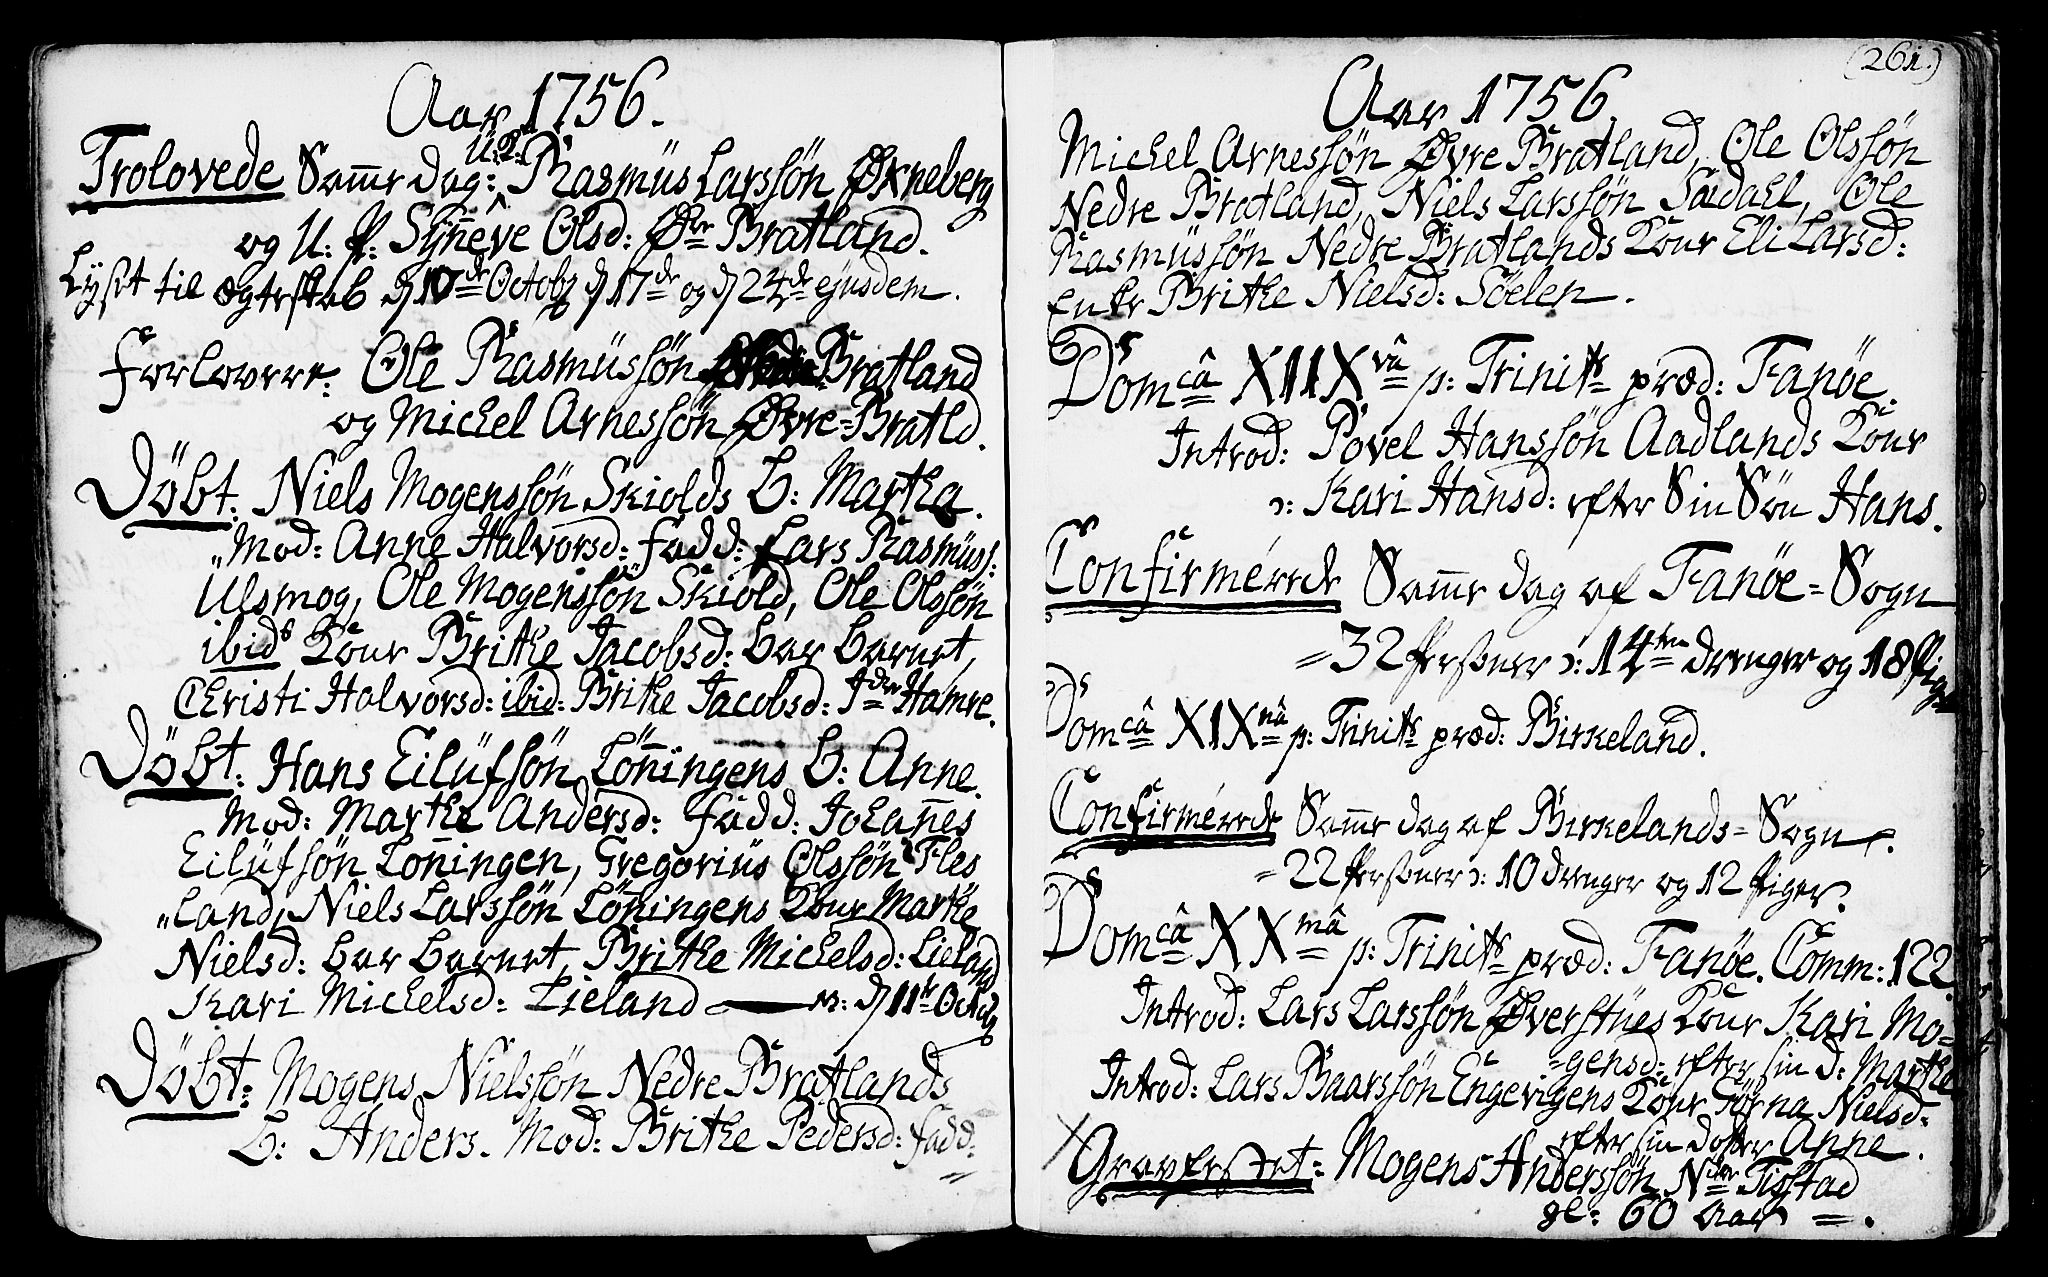 Aar 1756.
Trolovede Samme dag: U: K: Rasmüs Larssön Øxneberg
og U: P: Synneve Olsd: Øvre Bratland.
Lyst til Ægteskab d 10de Octobr d 17de og d 24de ejusdem.
Forlovere: Ole Rasmüssön Bratland
og Michel Arnessön Øvre=Bratld.
Döbt: Niels Mogenssön Skiolds b: Martha.
„Mod: Anne Halvorsd: fadd: Lars Rasmüss:
Ulsmog, Ole Mogenssön Skiold, Ole Olssön
ibids Kone Brithe Jacobsd: bar barnet,
Christi Halvorsd: ibid: Brithe Jacobsd: Hamre.
Döbt: Hans Eilüfsön Lönningens b: Anne.
Mod: Marthe Andersd: fadd: Johannes
Eilüfsön Lonningen, Gregorius Olssön Fles
„land, Niels Larssön Lönningens Kone Marthe
Nielsd: bar barnet, Brithe Michelsd: Lieland
Kari Michelsd: Lieland — n: d 11te Octobr
Döbt: Mogens Nielssön Nedre Bratlands
b: Anders. Mod: Brithe Pedersd: fadd:
(261.)
Aar 1756
Michel Arnessön Øvre Bratland, Ole Olssön
Nedre Bratland, Niels Larssön Sædahl, Ole
Rasmüssön Nedre Bratlands Kone Eli Larsd:
Enke Brithe Nielsd: Söelen.
Domcâ XIIXvâ p: Trinits præd: Fanöe.
Introd: Povel Hanssön Aadlands Kone
ɔ: Kari Hansd: efter Sin Sön Hans.
Confirmérede Samme dag af Fanöe=Sogn
=32 Persohner ɔ: 14ten drenger og 18 Piger
Domcâ XIXnâ p: Trinits præd: Birkeland.
Confirmérede Samme dag af Birkelands=Sogn.
=22 Persohner ɔ: 10 drenger og 12 Piger.
Domcâ XXmâ p: Trinits præd: Fanöe. Comm: 122.
Introd: Lars Larssön Øverstües Kone Kari Mo=
=gensd: efter sin d: Marthe
Introd: Lars Baarssön Engevigens Kone Nielsd:
efter sin dotter Anne.
Gravfestet: Mogens Anderssön Ndre Tistad
gl: 60 Aar =.